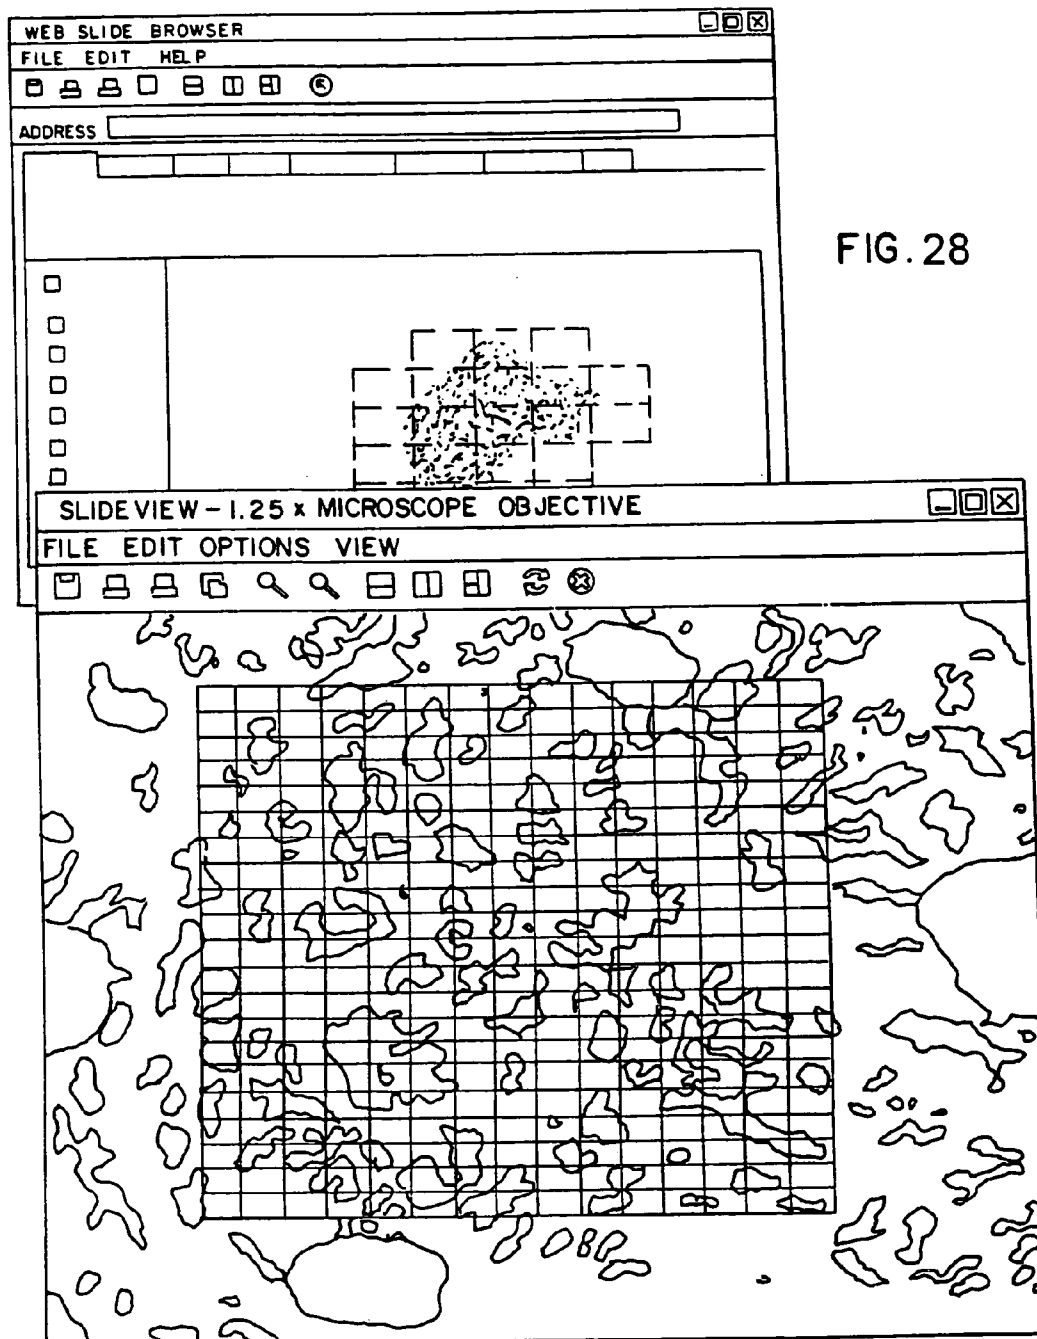 WEB SLIDE BROWSER
FILE EDIT HELP
ADDRESS
FIG. 28
SLIDE VIEW - 1.25 x MICROSCOPE OBJECTIVE
FILE EDIT OPTIONS VIEW